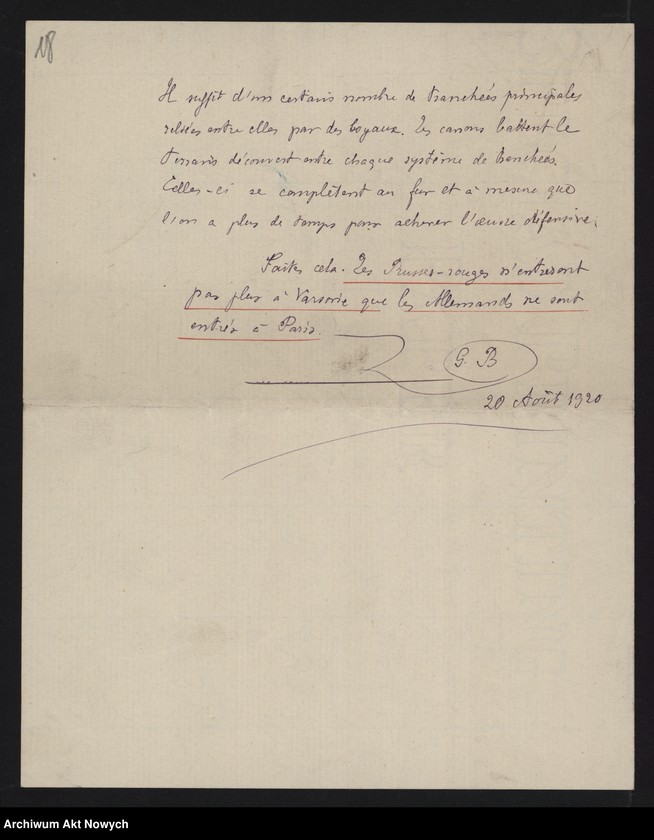 18
Il suffit d'un certain nombre de tranchées principales
reliées entre elles par des boyaux. Les canons battent le
terrain découvert entre chaque système de tranchées.
Celles-ci se complètent au fur et à mesure que
l'on a plus de temps pour achever l'œuvre défensive.
Faites cela. Les Russes-rouges n'entreront
pas plus à Varsovie que les Allemands ne sont
entrés à Paris.
G. B
20 Août 1920
Archiwum Akt Nowych